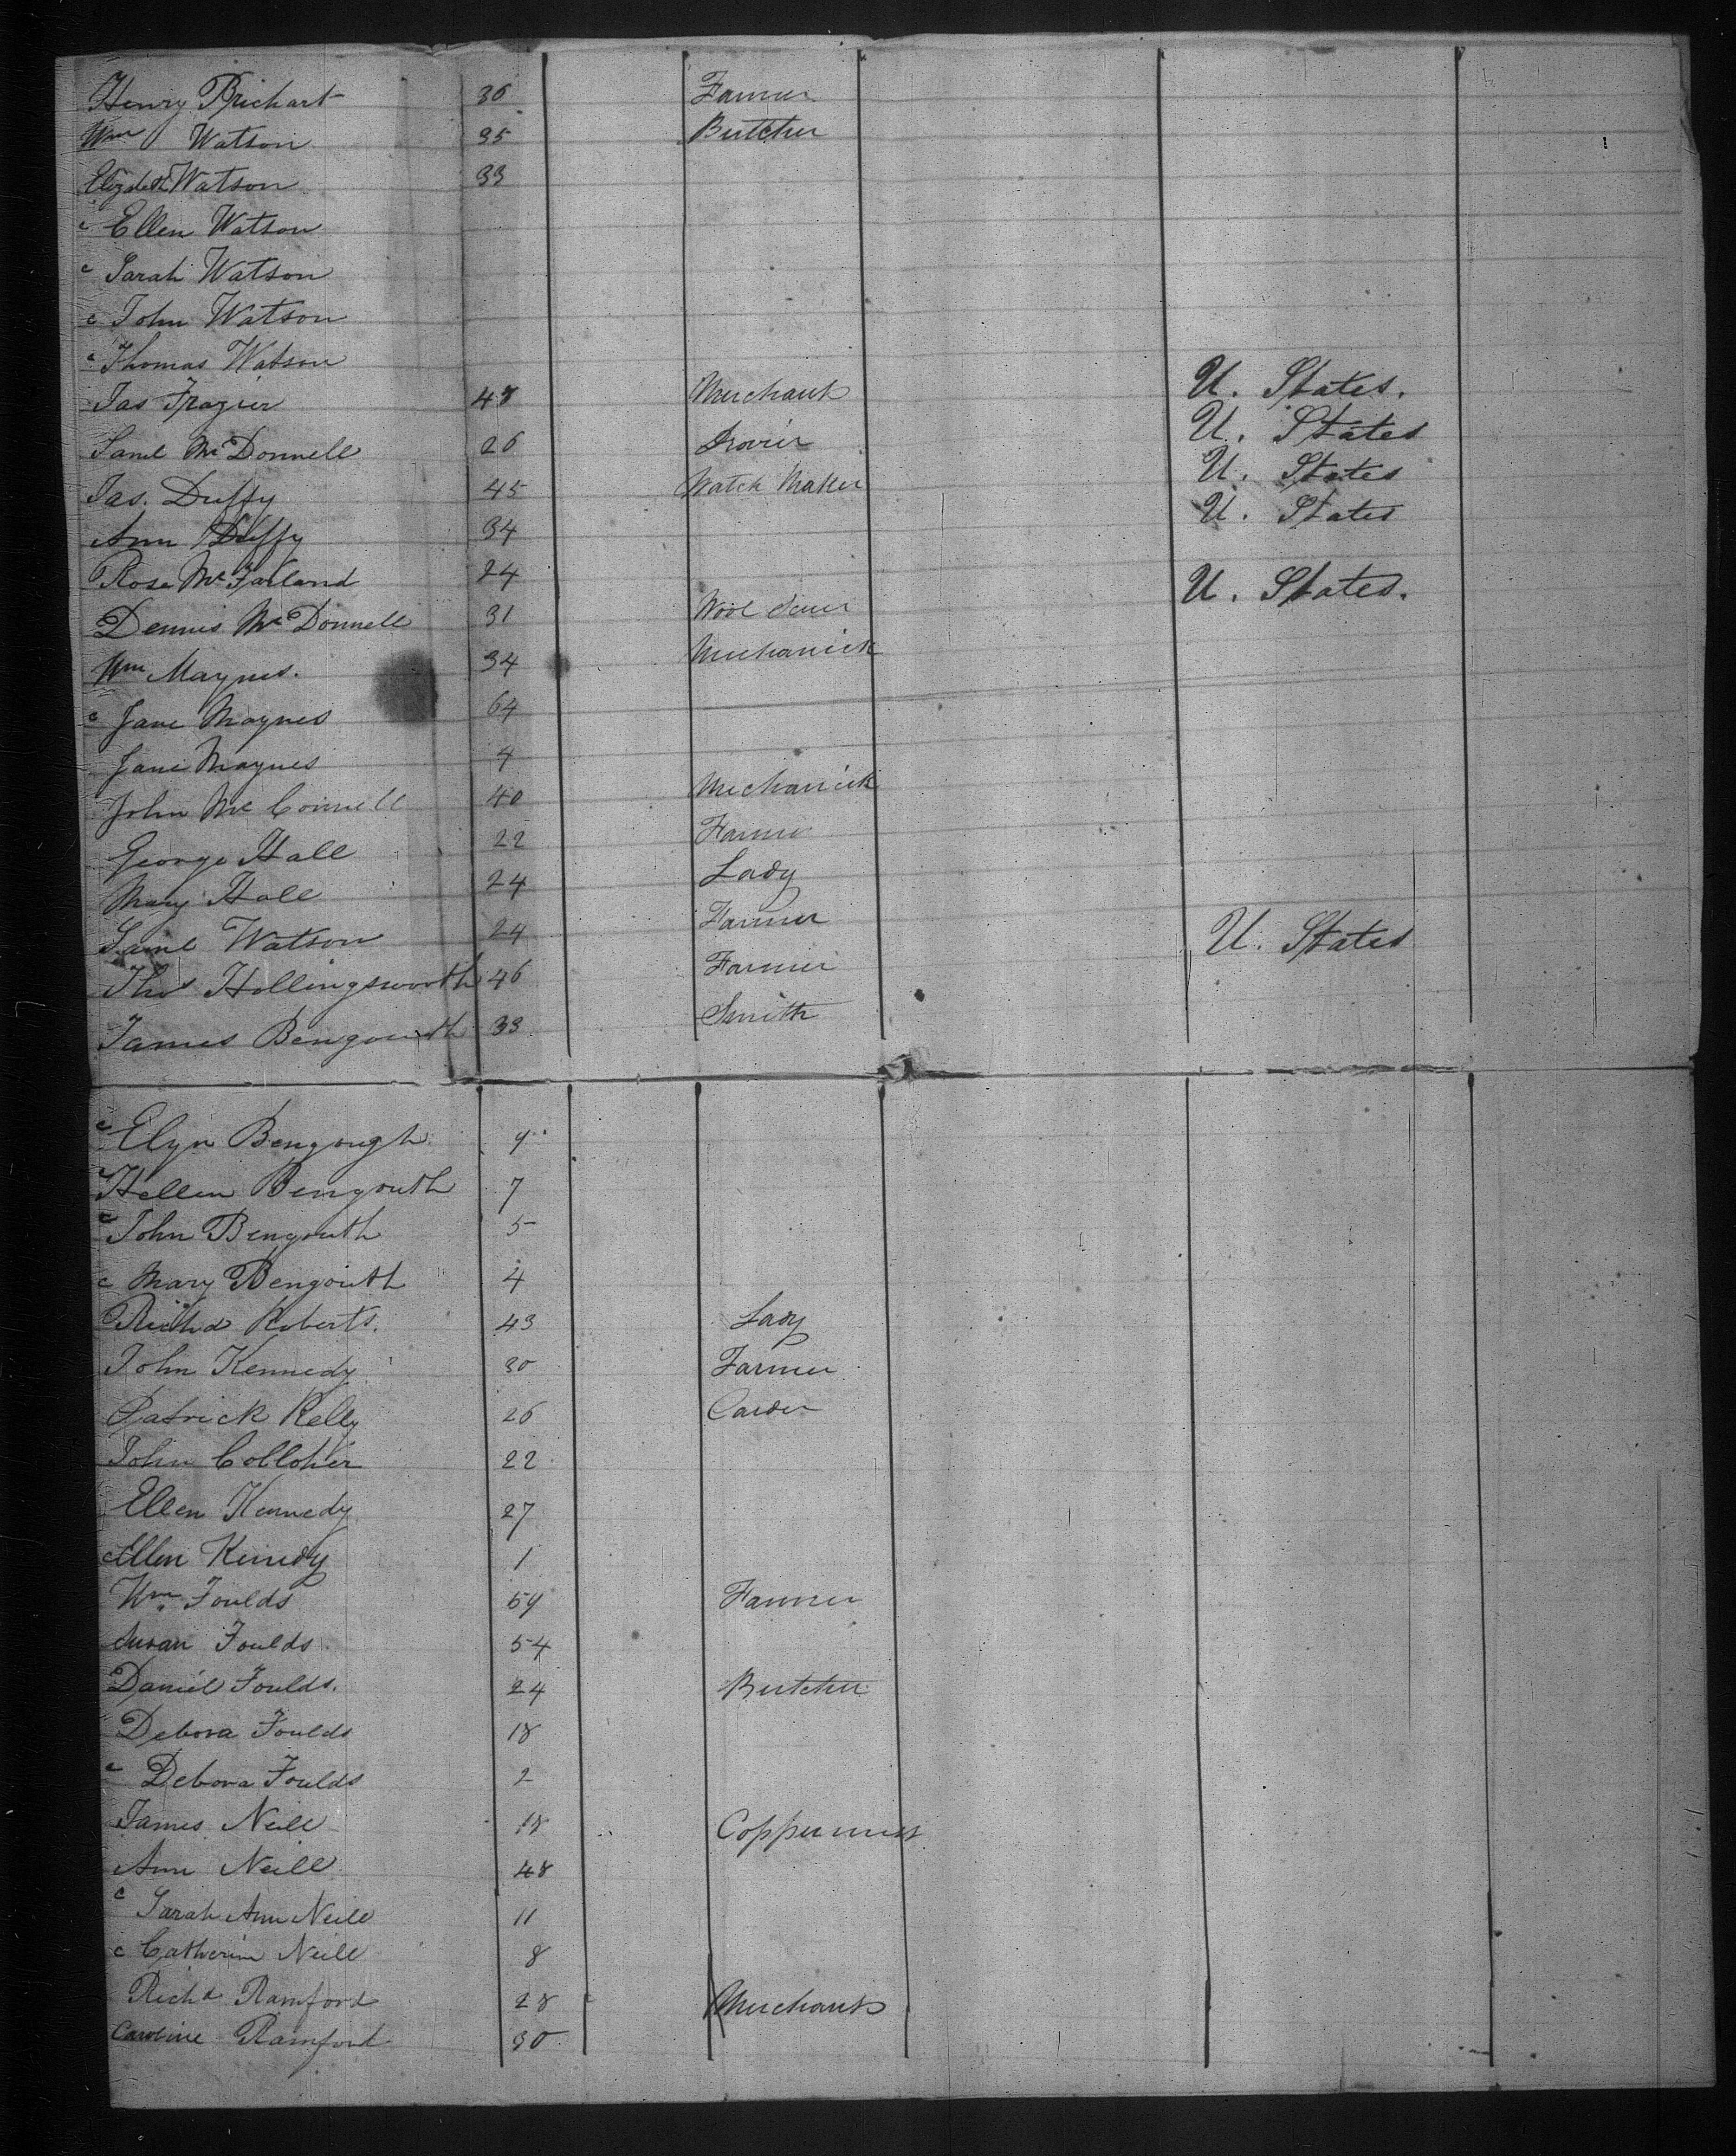 Henry Prichart 36 Farmer
Wm Watson 35 Butcher
Elizabeth Watson 33
c Ellen Watson
c Sarah Watson
c John Watson
c Thomas Watson
Jas Frazier 48 Merchant U. States.
Saml McDonnell 26 Drovier U. States
Jas. Duffy 45 Watch Maker U. States
Ann Duffy 34 U. States
Rose McFarland 24
Dennis McDonnell 31 Wool U. States.
Wm Maynes. 34 Mechanick
c Jane Maynes 64
Jane Maynes 4
John McConnell 40 Mechanick
George Hall 22 Farmer
Mary Hall 24 Lady
Saml Watson 24 Farmer
Thos Hollingsworth 46 Farmer U. States
James Bengouth 33 Smith
c Elyn Bengough 9
c Hellen Bengouth 7
c John Bengouth 5
c Mary Bengouth 4
Richd Roberts. 43 Lady
John Kennedy 30 Farmer
Patrick Kelly 26 Carder
John Colloher 22
Ellen Kennedy 27
c Ellen Kenedy 1
Wm. Foulds 59 Farmer
Susan Foulds 54
Daniel Foulds. 24 Butcher
Debora Foulds 18
c Debora Foulds 2
James Neill 18
Ann Neill 48
c Sarah Ann Neill 11
c Catherine Neill 8
Richd Ramford 28 Merchant
Caroline Ramford 30